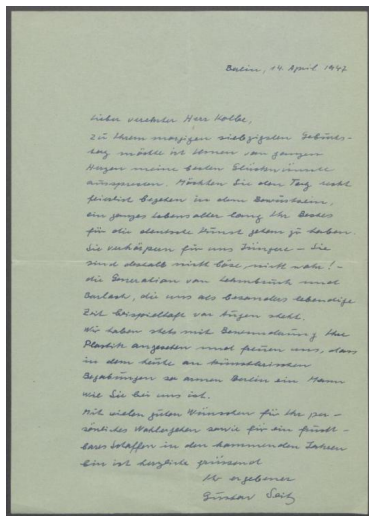 Berlin, 14. April 1947
Lieber verehrter Herr Kolbe,
zu Ihrem morgigen siebzigsten Geburts-
tag möchte ich Ihnen von ganzem
Herzen meine besten Glückwünsche
aussprechen. Möchten Sie den Tag recht
feierlich begehen in dem Bewusstsein,
ein ganzes Lebensalter lang Ihr Bestes
für die deutsche Kunst getan zu haben.
Sie verkörpern für uns Jüngere – Sie
sind deshalb nicht böse, nicht wahr! –
die Generation von Lehmbruck und
Barlach, die uns als besonders lebendige
Zeit beispielhaft vor Augen steht.
Wir haben stets mit Bewunderung Ihre
Plastik angesehen und freuen uns, dass
in dem heute an künstlerischen
Begabungen so armen Berlin ein Mann
wie Sie bei uns ist.
Mit vielen guten Wünschen für Ihr per-
sönliches Wohlergehen sowie für ein frucht-
bares Schaffen in den kommenden Jahren
bin ich herzlich grüssend
Ihr ergebener
Gustav Seitz